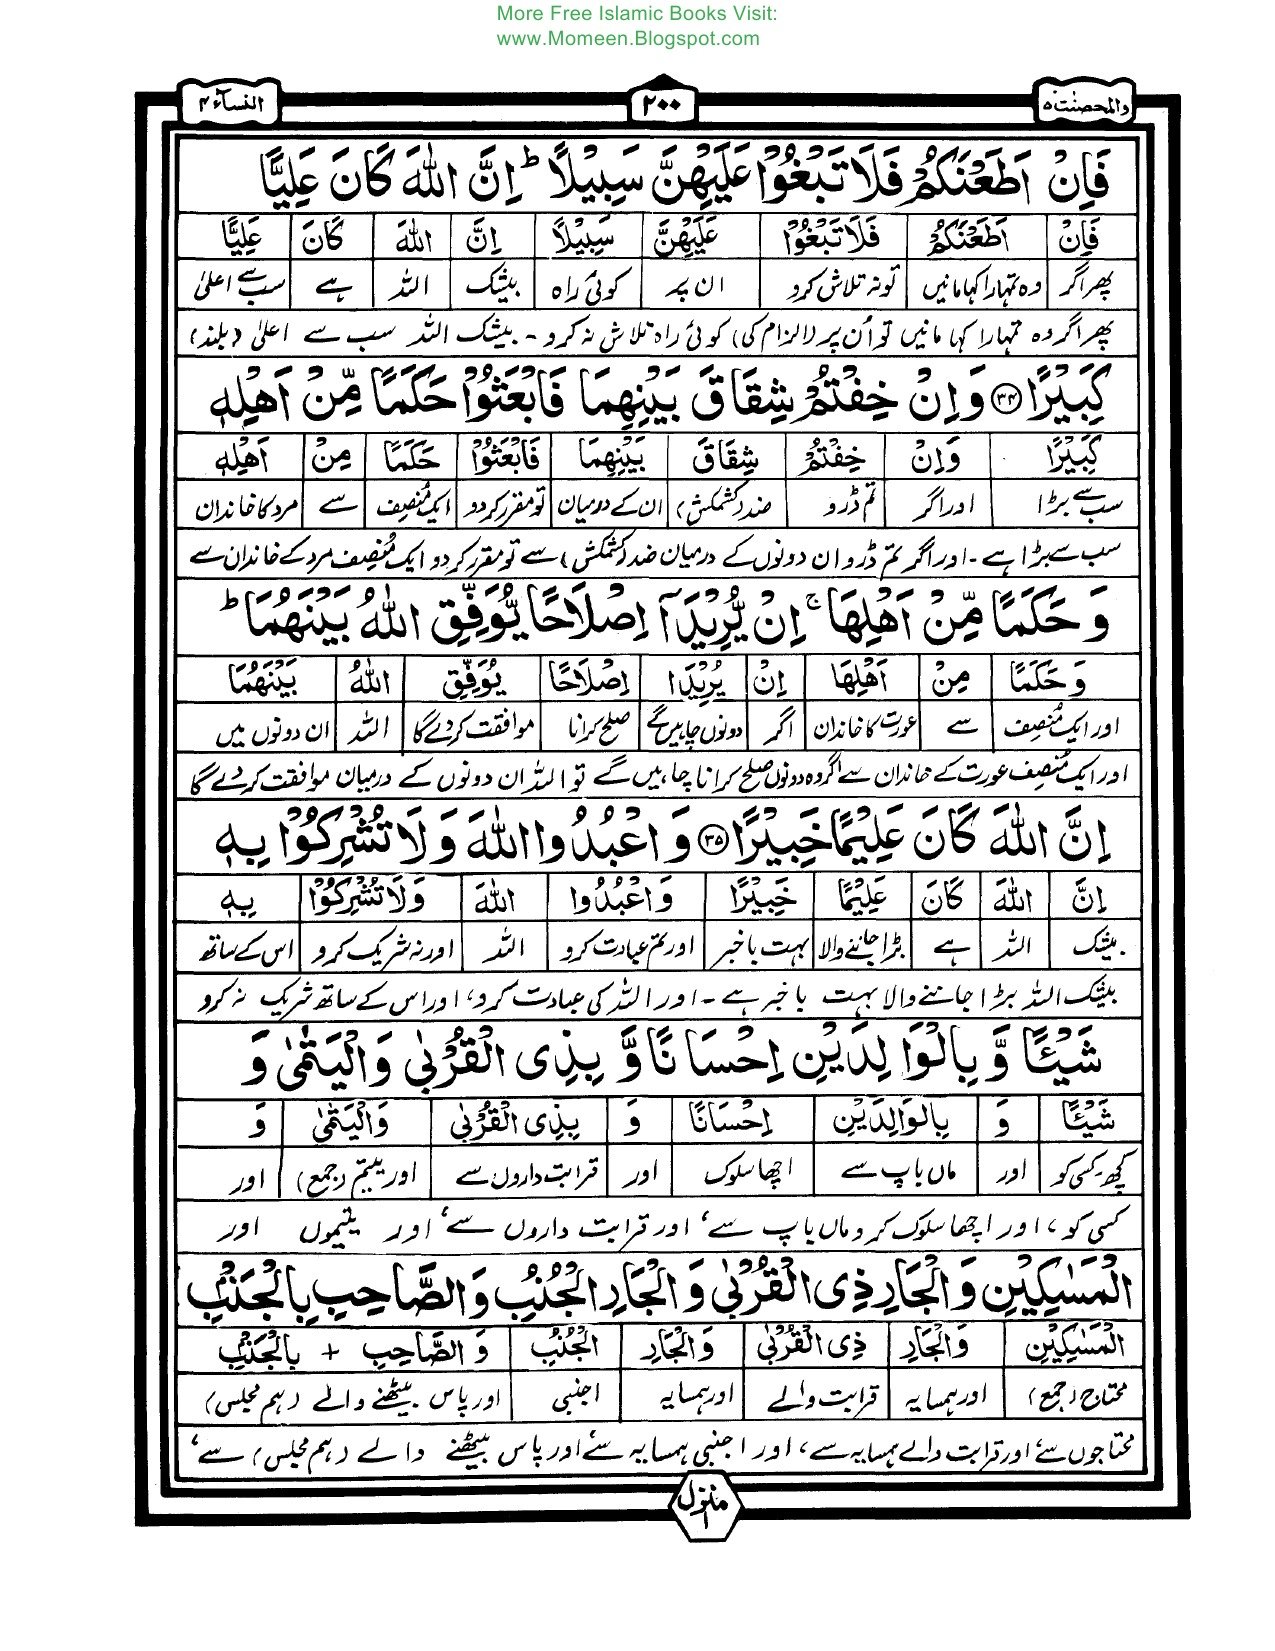 More Free Islamic Books Visit:
www.Momeen.Blogspot.com
والمحصنت ۵ ۲۰۰ النسآء ۴
فَاِنْ اَطَعْنَكُمْ فَلَا تَبْغُوْا عَلَيْهِنَّ سَبِيْلًا ؕ اِنَّ اللّٰهَ كَانَ عَلِيًّا
فَاِنْ اَطَعْنَكُمْ فَلَا تَبْغُوْا عَلَيْهِنَّ سَبِيْلًا اِنَّ اللّٰهَ كَانَ عَلِيًّا
پھر اگر وہ تمہارا کہا مانیں تو نہ تلاش کرو ان پر کوئی راہ بیشک اللہ ہے سب سے اعلیٰ
پھر اگر وہ تمہارا کہا مانیں تو اُن پر (الزام کی) کوئی راہ تلاش نہ کرو - بیشک اللہ سب سے اعلیٰ (بلند)
كَبِيْرًا ﴿۳۴﴾ وَاِنْ خِفْتُمْ شِقَاقَ بَيْنِهِمَا فَابْعَثُوْا حَكَمًا مِّنْ اَهْلِهٖ
كَبِيْرًا وَاِنْ خِفْتُمْ شِقَاقَ بَيْنِهِمَا فَابْعَثُوْا حَكَمًا مِنْ اَهْلِهٖ
سب سے بڑا اور اگر تم ڈرو ضد (کشمکش) ان کے درمیان تو مقرر کردو ایک مُنصِف سے مرد کا خاندان
سب سے بڑا ہے - اور اگر تم ڈرو ان دونوں کے درمیان ضد (کشمکش) سے تو مقرر کر دو ایک مُنصِف مرد کے خاندان سے
وَحَكَمًا مِّنْ اَهْلِهَا ۚ اِنْ يُّرِيْدَآ اِصْلَاحًا يُّوَفِّقِ اللّٰهُ بَيْنَهُمَا ؕ
وَحَكَمًا مِنْ اَهْلِهَا اِنْ يُرِيْدَا اِصْلَاحًا يُوَفِّقِ اللّٰهُ بَيْنَهُمَا
اور ایک مُنصِف سے عورت کا خاندان اگر دونوں چاہیں گے صلح کرانا موافقت کر دے گا اللہ ان دونوں میں
اور ایک مُنصِف عورت کے خاندان سے اگر وہ دونوں صلح کرانا چاہیں گے تو اللہ ان دونوں کے درمیان موافقت کر دے گا
اِنَّ اللّٰهَ كَانَ عَلِيْمًا خَبِيْرًا ﴿۳۵﴾ وَاعْبُدُوا اللّٰهَ وَلَا تُشْرِكُوْا بِهٖ
اِنَّ اللّٰهَ كَانَ عَلِيْمًا خَبِيْرًا وَاعْبُدُوا اللّٰهَ وَلَا تُشْرِكُوْا بِهٖ
بیشک اللہ ہے بڑا جاننے والا بہت باخبر اور تم عبادت کرو اللہ اور نہ شریک کرو اس کے ساتھ
بیشک اللہ بڑا جاننے والا بہت باخبر ہے - اور اللہ کی عبادت کرو، اور اس کے ساتھ شریک نہ کرو
شَيْـًٔا وَّبِالْوَالِدَيْنِ اِحْسَانًا وَّبِذِى الْقُرْبٰى وَالْيَتٰمٰى وَ
شَيْـًٔا وَ بِالْوَالِدَيْنِ اِحْسَانًا وَ بِذِى الْقُرْبٰى وَالْيَتٰمٰى وَ
کچھ - کسی کو اور ماں باپ سے اچھا سلوک اور قرابت داروں سے اور یتیم (جمع) اور
کسی کو، اور اچھا سلوک کرو ماں باپ سے، اور قرابت داروں سے، اور یتیموں اور
الْمَسٰكِيْنِ وَالْجَارِ ذِى الْقُرْبٰى وَالْجَارِ الْجُنُبِ وَالصَّاحِبِ بِالْجَنْۢبِ
الْمَسٰكِيْنِ وَالْجَارِ ذِى الْقُرْبٰى وَالْجَارِ الْجُنُبِ وَالصَّاحِبِ + بِالْجَنْۢبِ
محتاج (جمع) اور ہمسایہ قرابت والے اور ہمسایہ اجنبی اور پاس بیٹھنے والے (ہم مجلس)
محتاجوں سے، اور قرابت والے ہمسایہ سے، اور اجنبی ہمسایہ سے، اور پاس بیٹھنے والے (ہم مجلس) سے،
منزل ۱